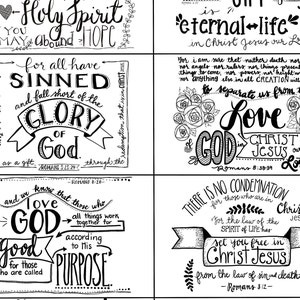 Holy Spirit
YOU MAY abound in HOPE
GIFT
is
eternal life
in Christ Jesus our
for all have
SINNED
and fall short of the
GLORY
OF
God
as a gift.
ROMANS 3:23-24
through the
redemption that is in CHRIST
For i am sure that neither death nor
nor angels nor rulers nor things present
things to come, nor powers nor height
nor anything else in all CREATION
to separate us from the
Love
of
GOD in CHRIST
Jesus
our
Romans 8:38-39
ROMANS 8:28
and we know that those who
love
GOD
all things work
together for
good
for those
who are called
according to
His
PURPOSE
THERE IS NO CONDEMNATION
for those who are in
Chris
Je
for the law of the
SPIRIT of LIFE has
set you free in
Christ Jesus
from the law of sin and death
Romans 8:1-